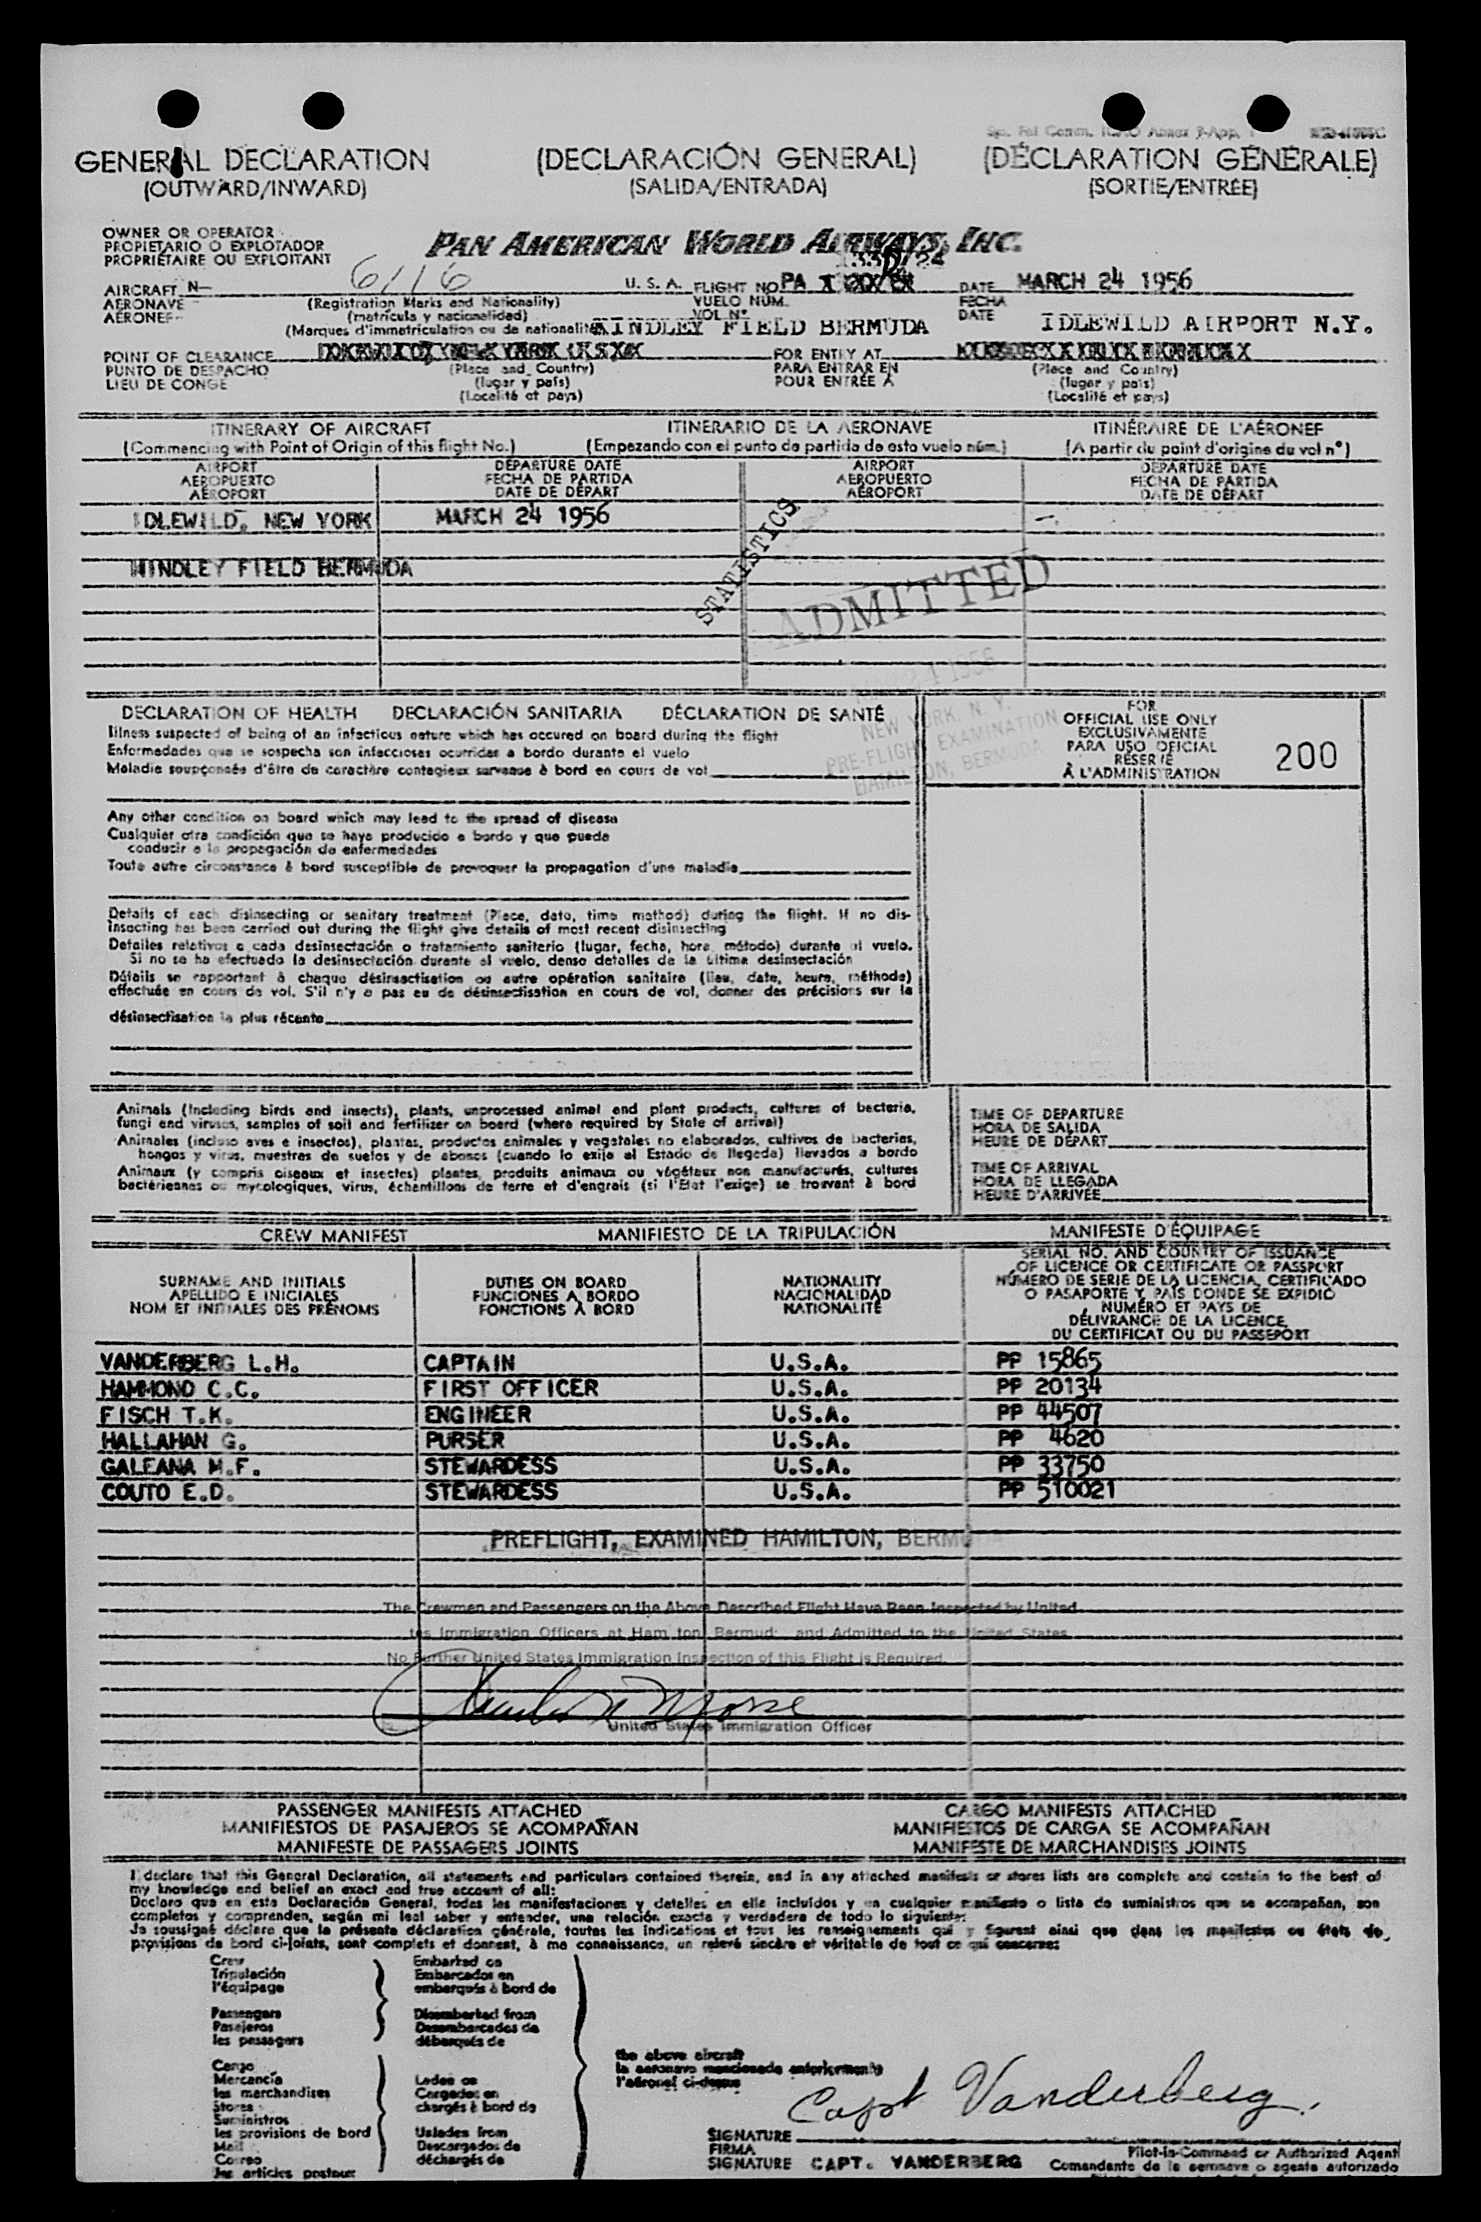 GENERAL DECLARATION
(OUTWARD/INWARD)
(DECLARACIÓN GENERAL)
(SALIDA/ENTRADA)
(DÉCLARATION GÉNÉRALE)
(SORTIE/ENTRÉE)
OWNER OR OPERATOR
PROPIETARIO O EXPLOTADOR
PROPRIÉTAIRE OU EXPLOITANT
PAN AMERICAN WORLD AIRWAYS, INC.
AIRCRAFT N— 6116 U. S. A. FLIGHT NO. PA DATE MARCH 24 1956
AERONAVE (Registration Marks and Nationality) VUELO NUM. FECHA
AÉRONEF (matrícula y nacionalidad) VOL Nº DATE
(Marques d'immatriculation ou de nationalité) KINDLEY FIELD BERMUDA IDLEWILD AIRPORT N.Y.
POINT OF CLEARANCE FOR ENTRY AT
PUNTO DE DESPACHO (Place and Country) PARA ENTRAR EN (Place and Country)
LIEU DE CONGE (lugar y país) POUR ENTRÉE À (lugar y país)
(Localité et pays) (Localité et pays)
ITINERARY OF AIRCRAFT ITINERARIO DE LA AERONAVE ITINÉRAIRE DE L'AÉRONEF
(Commencing with Point of Origin of this flight No.) (Empezando con el punto de partida de esto vuelo núm.) (A partir du point d'origine du vol nº)
AIRPORT DEPARTURE DATE AIRPORT DEPARTURE DATE
AEROPUERTO FECHA DE PARTIDA AEROPUERTO FECHA DE PARTIDA
AÉROPORT DATE DE DÉPART AÉROPORT DATE DE DÉPART
IDLEWILD, NEW YORK MARCH 24 1956
KINDLEY FIELD BERMUDA
STATISTICS
ADMITTED
NEW YORK, N. Y.
PRE-FLIGHT EXAMINATION
HAMILTON, BERMUDA
DECLARATION OF HEALTH DECLARACIÓN SANITARIA DÉCLARATION DE SANTÉ
Illness suspected of being of an infectious nature which has occured on board during the flight
Enfermedades que se sospecha son infecciosas ocurridas a bordo durante el vuelo
Maladie soupçonnée d'être de caractère contagieux survenue à bord en cours de vol
FOR
OFFICIAL USE ONLY
EXCLUSIVAMENTE
PARA USO OFICIAL
RÉSERVÉ
À L'ADMINISTRATION
200
Any other condition on board which may lead to the spread of disease
Cualquier otra condición que se haya producido a bordo y que pueda
conducir a la propagación de enfermedades
Toute autre circonstance à bord susceptible de provoquer la propagation d'une maladie
Details of each disinsecting or sanitary treatment (Place, date, time method) during the flight. If no dis-
insecting has been carried out during the flight give details of most recent disinsecting
Detailes relativos a cada desinsectación o tratamiento sanitario (lugar, fecha, hora, método) durante el vuelo.
Si no se ha efectuado la desinsectación durante el vuelo, dense detalles de la última desinsectación
Détails se rapportant à chaque désinsectisation ou autre opération sanitaire (lieu, date, heure, méthode)
effectuée en cours de vol. S'il n'y a pas eu de désinsectisation en cours de vol, donner des précisions sur la
désinsectisation la plus récente
Animals (Including birds and insects), plants, unprocessed animal and plant products, cultures of bacteria,
fungi and viruses, samples of soil and fertilizer on board (where required by State of arrival)
Animales (incluso aves e insectos), plantas, productos animales y vegetales no elaborados, cultivos de bacterias,
hongos y virus, muestras de suelos y de abonos (cuando lo exija el Estado de llegada) llevados a bordo
Animaux (y compris oiseaux et insectes) plantes, produits animaux ou végétaux non manufacturés, cultures
bactériennes ou mycologiques, virus, échantillons de terre et d'engrais (si l'Etat l'exige) se trouvant à bord
TIME OF DEPARTURE
HORA DE SALIDA
HEURE DE DÉPART
TIME OF ARRIVAL
HORA DE LLEGADA
HEURE D'ARRIVÉE
CREW MANIFEST MANIFIESTO DE LA TRIPULACIÓN MANIFESTE D'ÉQUIPAGE
SURNAME AND INITIALS
APELLIDO E INICIALES
NOM ET INITIALES DES PRÉNOMS
DUTIES ON BOARD
FUNCIONES A BORDO
FONCTIONS À BORD
NATIONALITY
NACIONALIDAD
NATIONALITÉ
SERIAL NO. AND COUNTRY OF ISSUANCE
OF LICENCE OR CERTIFICATE OR PASSPORT
NÚMERO DE SERIE DE LA LICENCIA, CERTIFICADO
O PASAPORTE Y PAÍS DONDE SE EXPIDIÓ
NUMÉRO ET PAYS DE
DÉLIVRANCE DE LA LICENCE,
DU CERTIFICAT OU DU PASSEPORT
VANDERBERG L.H. CAPTAIN U.S.A. PP 15865
HAMMOND C.C. FIRST OFFICER U.S.A. PP 20134
FISCH T.K. ENGINEER U.S.A. PP 44507
HALLAHAN G. PURSER U.S.A. PP 4620
GALEANA M.F. STEWARDESS U.S.A. PP 33750
COUTO E.D. STEWARDESS U.S.A. PP 510021
PREFLIGHT, EXAMINED HAMILTON, BERMUDA
The Crewmen and Passengers on the Above Described Flight Have Been Inspected by United
tes Immigration Officers at Ham ton, Bermud and Admitted to the United States
No Further United States Immigration Inspection of this Flight is Required.
United States Immigration Officer
PASSENGER MANIFESTS ATTACHED
MANIFIESTOS DE PASAJEROS SE ACOMPAÑAN
MANIFESTE DE PASSAGERS JOINTS
CARGO MANIFESTS ATTACHED
MANIFIESTOS DE CARGA SE ACOMPAÑAN
MANIFESTE DE MARCHANDISES JOINTS
I declare that this General Declaration, all statements and particulars contained therein, and in any attached manifests or stores lists are complete and contain to the best of
my knowledge and belief an exact and true account of all:
Declaro que en esta Declaración General, todas las manifestaciones y detalles en ella incluidos y en cualquier manifiesto o lista de suministros que se acompañan, son
completos y comprenden, según mi leal saber y entender, una relación exacta y verdadera de todo lo siguiente:
Je soussigné déclare que la présente déclaration générale, toutes les indications et tous les renseignements qui y figurent ainsi que dans les manifestes ou états de
provisions de bord ci-joints, sont complets et donnent, à ma connaissance, un relevé sincère et véritable de tout ce qui concerne:
Crew
Tripulación
l'équipage
Passengers
Pasajeros
les passagers
Cargo
Mercancía
les marchandises
Stores
Suministros
les provisions de bord
Mail
Correo
les articles postaux
Embarked on
Embarcados en
embarqués à bord de
Disembarked from
Desembarcados de
débarqués de
Laden on
Cargados en
chargés à bord de
Unladen from
Descargados de
déchargés de
the above aircraft
la aeronave mencionada anteriormente
l'aéronef ci-dessus
Capt Vanderberg.
SIGNATURE
FIRMA
SIGNATURE CAPT. VANDERBERG
Pilot-in-Command or Authorized Agent
Comandante de la aeronave o agente autorizado